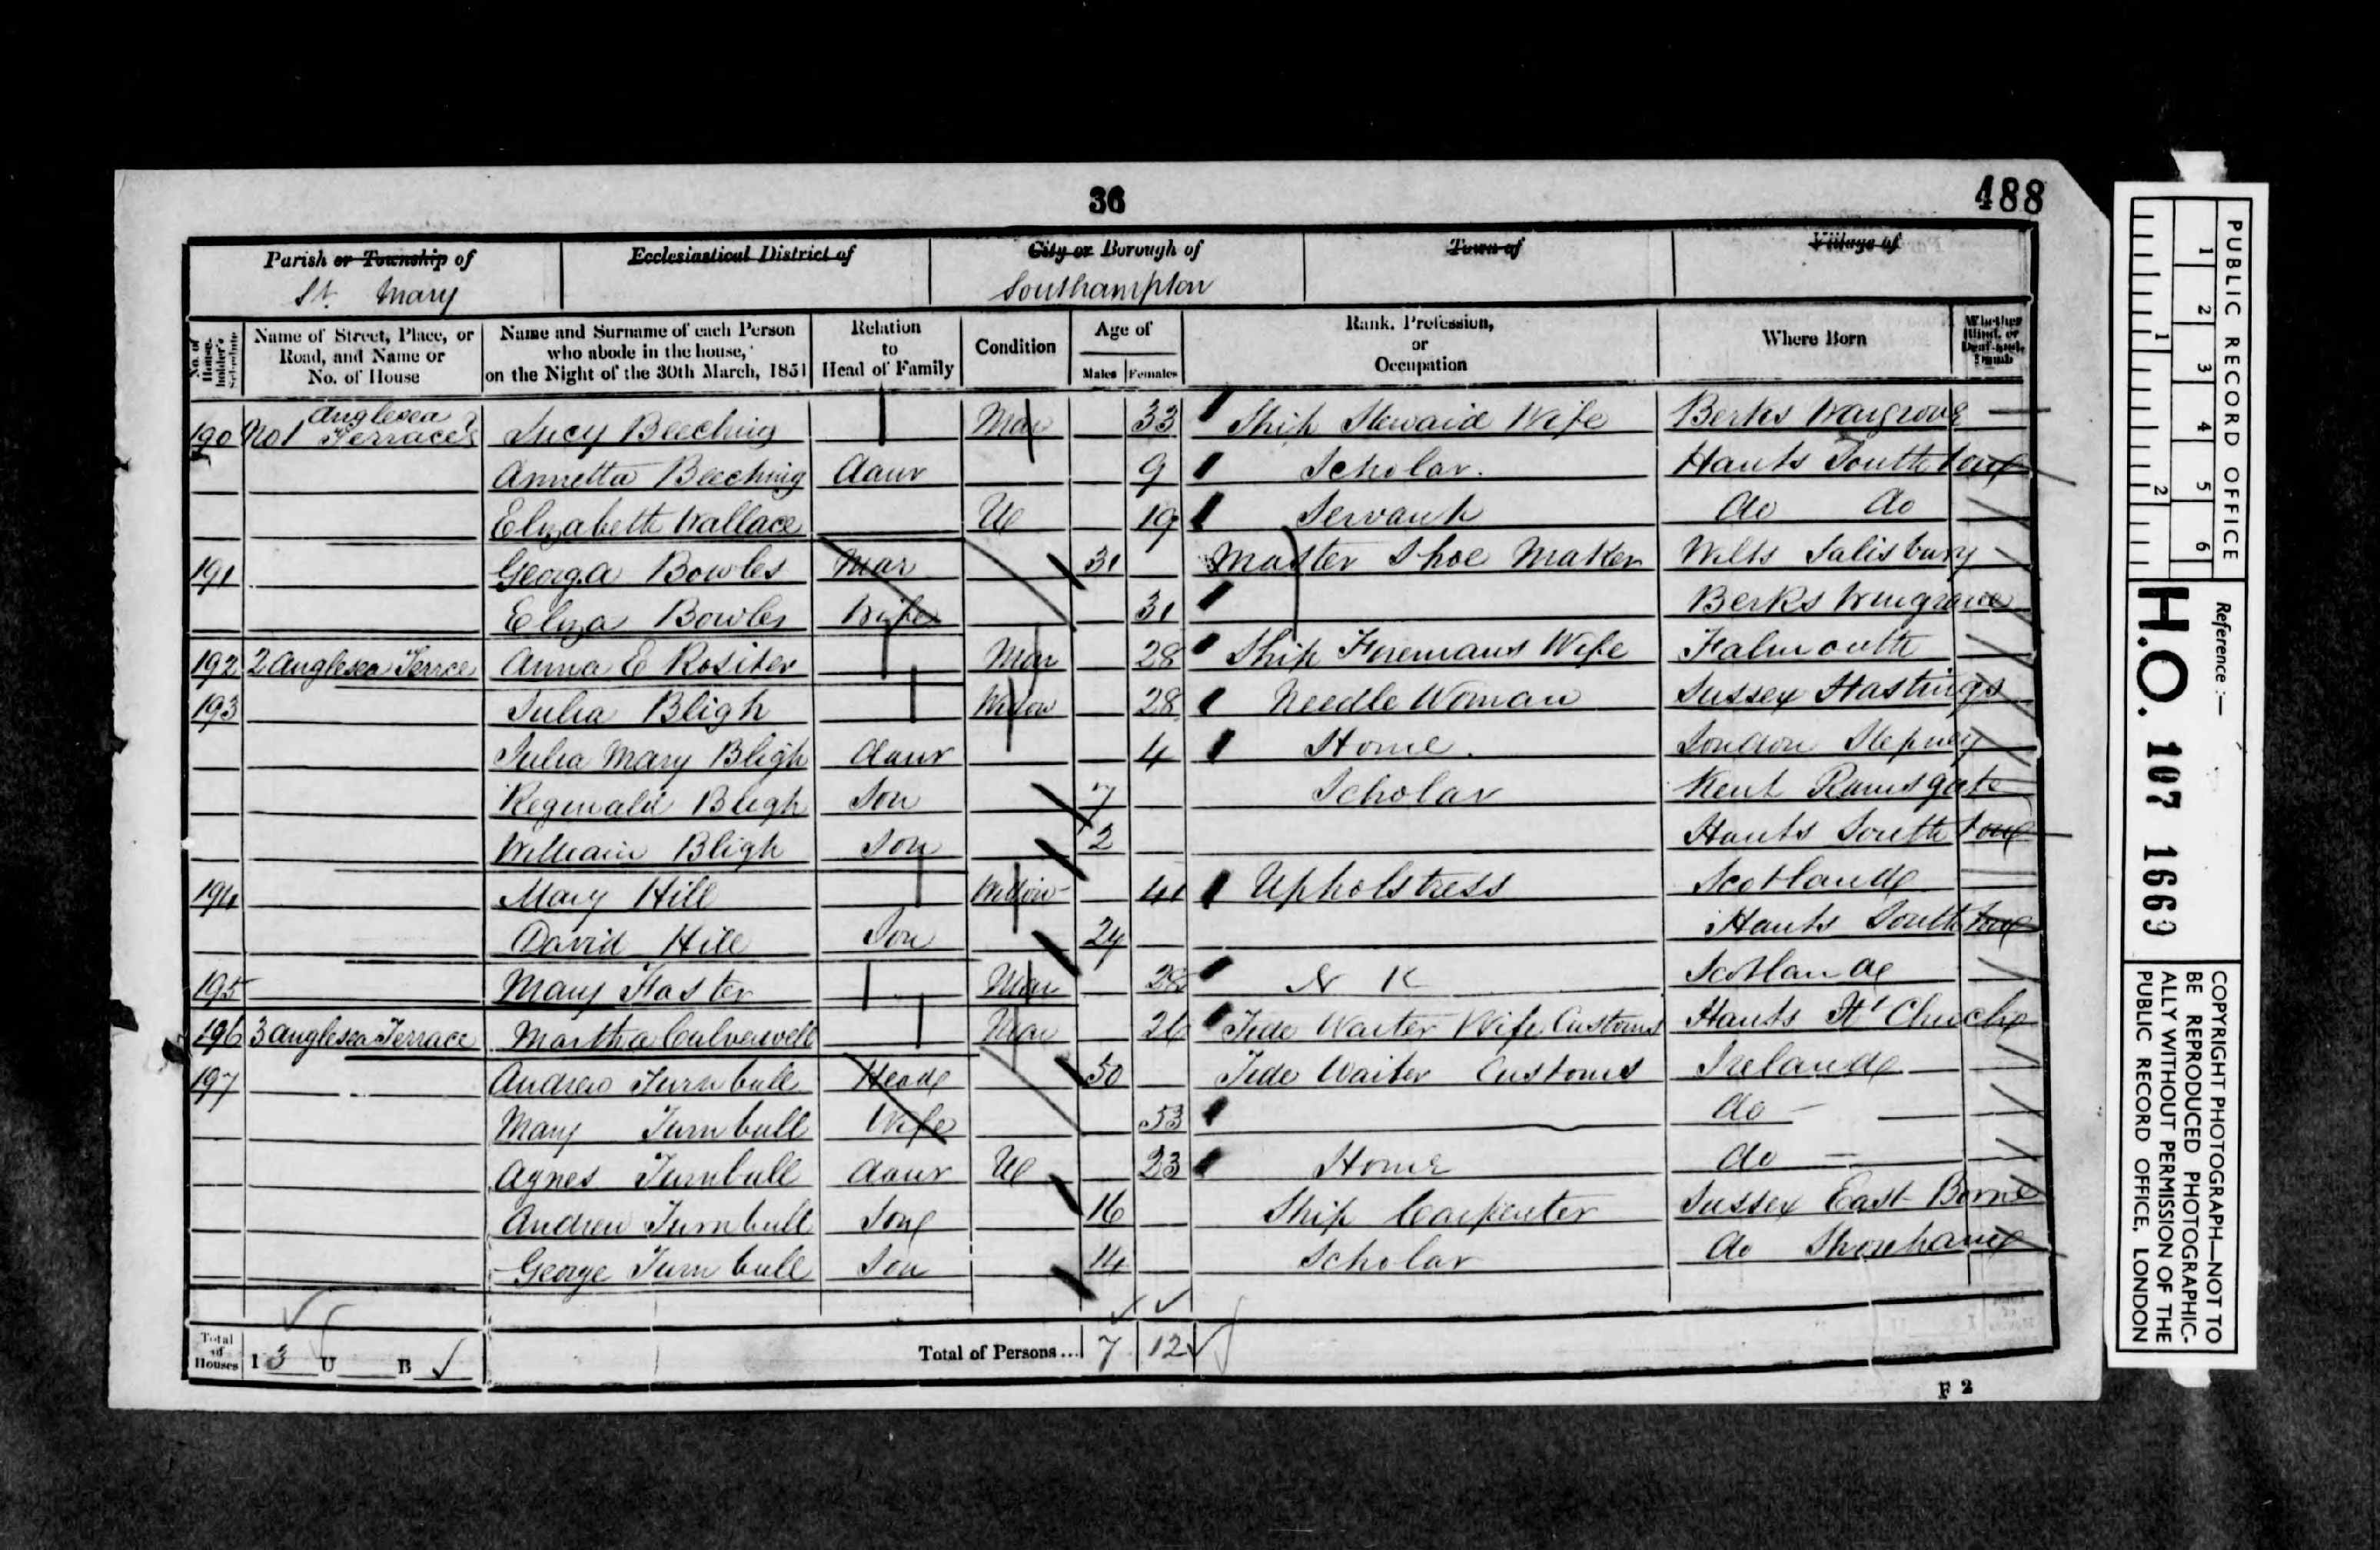 36
488
Parish or Township of
St. Mary
Ecclesiastical District of
City or Borough of
Southampton
Town of
Village of
No. of House-holder's Schedule
Name of Street, Place, or Road, and Name or No. of House
Name and Surname of each Person who abode in the house, on the Night of the 30th March, 1851
Relation to Head of Family
Condition
Age of
Males Females
Rank, Profession, or Occupation
Where Born
Whether Blind, or Deaf-and-Dumb
190 No 1 Anglesea Terrace Lucy Beeching Mar 33 Ship Steward Wife Berks Wargrove
Annetta Beeching Daur 9 Scholar. Hants Southton
Elizabeth Wallace U 19 Servant do do
191 George Bowles Mar 31 Master Shoe Maker Wilts Salisbury
Eliza Bowles Wife 31 Berks Wargrave
192 2 Anglesea Terrace Anna E Rositer Mar 28 Ship Firemans Wife Falmouth
193 Julia Bligh Widow 28 Needle Woman Sussex Hastings
Julia Mary Bligh Daur 4 Home. London Stepney
Reginald Bligh Son 7 Scholar Kent Ramsgate
William Bligh Son 2 Hants Southton
194 Mary Hill Widow 41 Upholstress Scotland
David Hill Son 24 Hants Southton
195 Mary Foster Mar 28 N K Scotland
196 3 Anglesea Terrace Martha Culverwell Mar 26 Tide Waiter Wife Customs Hants
197 Andrew Turnbull Head 50 Tide Waiter Customs Ireland
Mary Turnbull Wife 53 do
Agnes Turnbull Daur U 23 Home do
Andrew Turnbull Son 16 Ship Carpenter Sussex East Borne
George Turnbull Son 14 Scholar do Shoreham
Total of Houses I 3 U B
Total of Persons... 7 12
F 2
PUBLIC RECORD OFFICE
1 2 3 4 5 6
1 2
Reference :-
H.O. 107 1669
COPYRIGHT PHOTOGRAPH—NOT TO
BE REPRODUCED PHOTOGRAPHIC-
ALLY WITHOUT PERMISSION OF THE
PUBLIC RECORD OFFICE, LONDON